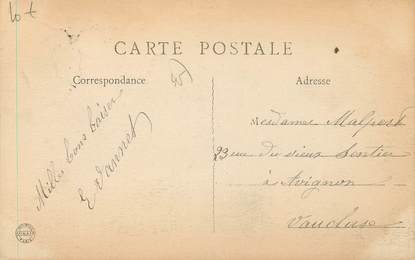 10 €
CARTE POSTALE
Correspondance
Adresse
Milles bons baiser
E Vannet
Mesdames Malpost
23 rue du vieux Sentier
à Avignon
Vaucluse